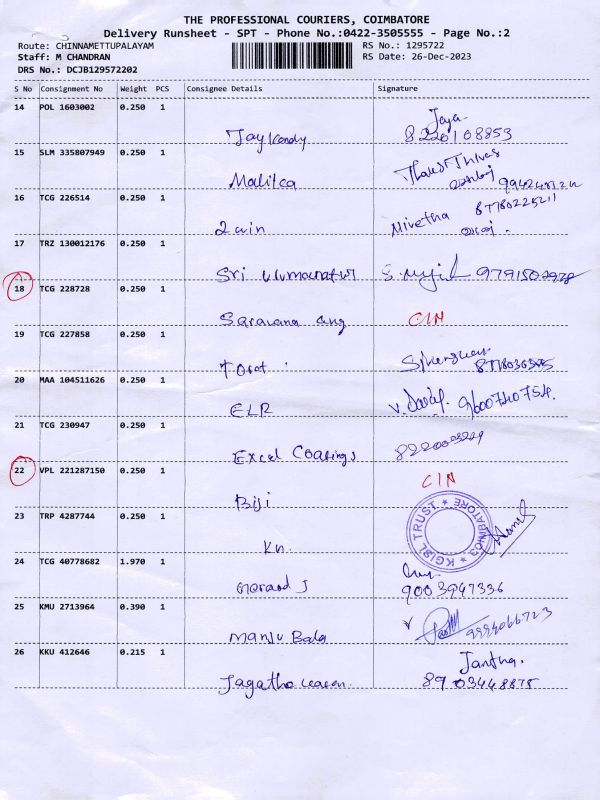 THE PROFESSIONAL COURIERS, COIMBATORE
Delivery Runsheet - SPT - Phone No.:0422-3505555 - Page No.:2
Route: CHINNAMETTUPALAYAM RS No.: 1295722
Staff: M CHANDRAN RS Date: 26-Dec-2023
DRS No.: DCJB129572202
S No Consignment No Weight PCS Consignee Details Signature
14 POL 1603002 0.250 1 Jaya
8220108853
15 SLM 335807949 0.250 1
Malitca
16 TCG 226514 0.250 1 87780225211
Nivetha
17 TRZ 130012176 0.250 1
Sri
18 TCG 228728 0.250 1
Saravana ang CIN
19 TCG 227858 0.250 1
20 MAA 104511626 0.250 1
ELR
21 TCG 230947 0.250 1
Excel Coatings
22 VPL 221287150 0.250 1 CIN
Biji
KGISL TRUST COIMBATORE
23 TRP 4287744 0.250 1
Kn.
24 TCG 40778682 1.970 1
9003947336
25 KMU 2713964 0.390 1
Manju Bala 9994066723
26 KKU 412646 0.215 1
8903448875